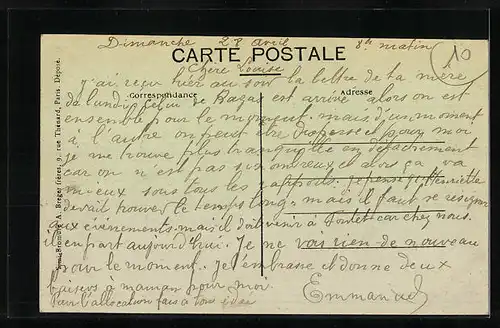 Dimanche 28 avril 8h matin
10
CARTE POSTALE
Chère Louise
j'ai reçu hier au soir la lettre de ta mère
Correspondance Adresse
de lundi celui de est arrivé alors on est
ensemble pour le moment. mais d'un moment
à l'autre on peut être dispersé et pour moi
je me trouve plus tranquille en détachement
car on n'est pas si nombreux et alors ça va
mieux sous tous les rapports. je pense qu'Henriette
devait trouver le temps long, mais il faut se résigner
aux événements. mais il doit venir à car chez nous.
il en part aujourd'hui. Je ne vois rien de nouveau
pour le moment. Je t'embrasse et donne deux
baisers à maman pour moi
Emmanuel
Pour l'allocation fais à ton idée
A. Breger frères, 9, rue Thénard, Paris. Déposé.